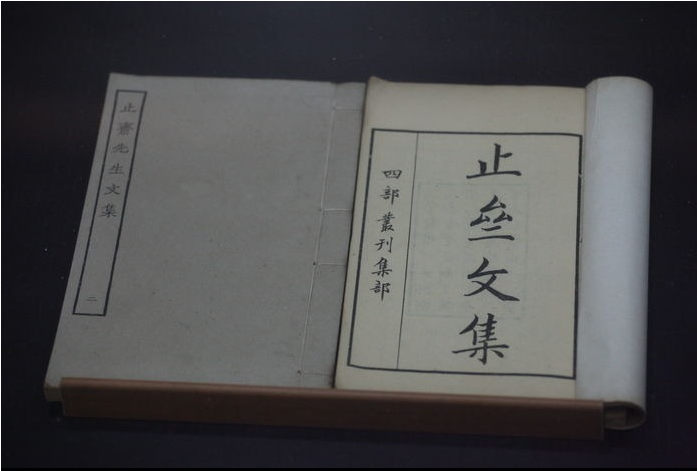 止亝文集
四部叢刊集部
止齋先生文集
二